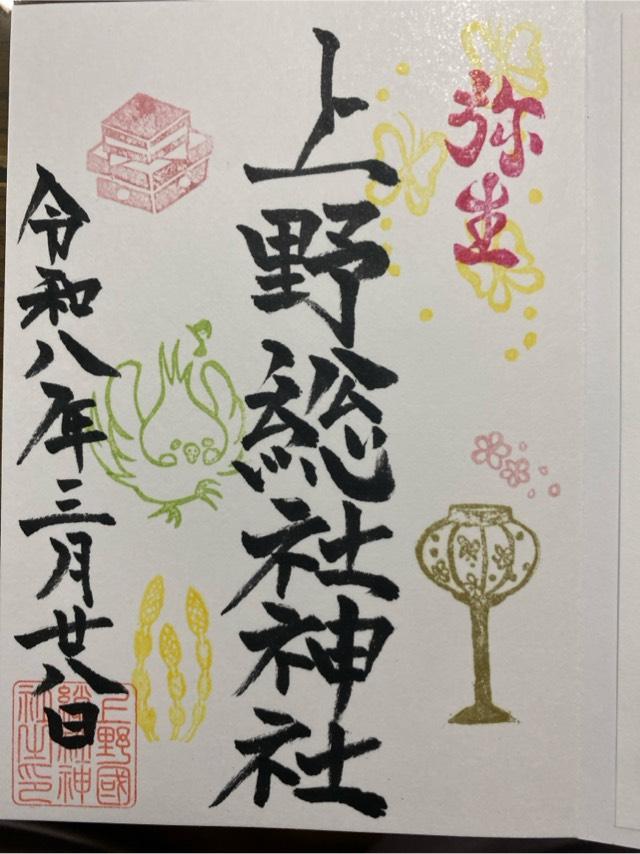 弥生
上野総社神社
令和八年三月廿八日
上野國
総社神
社之印